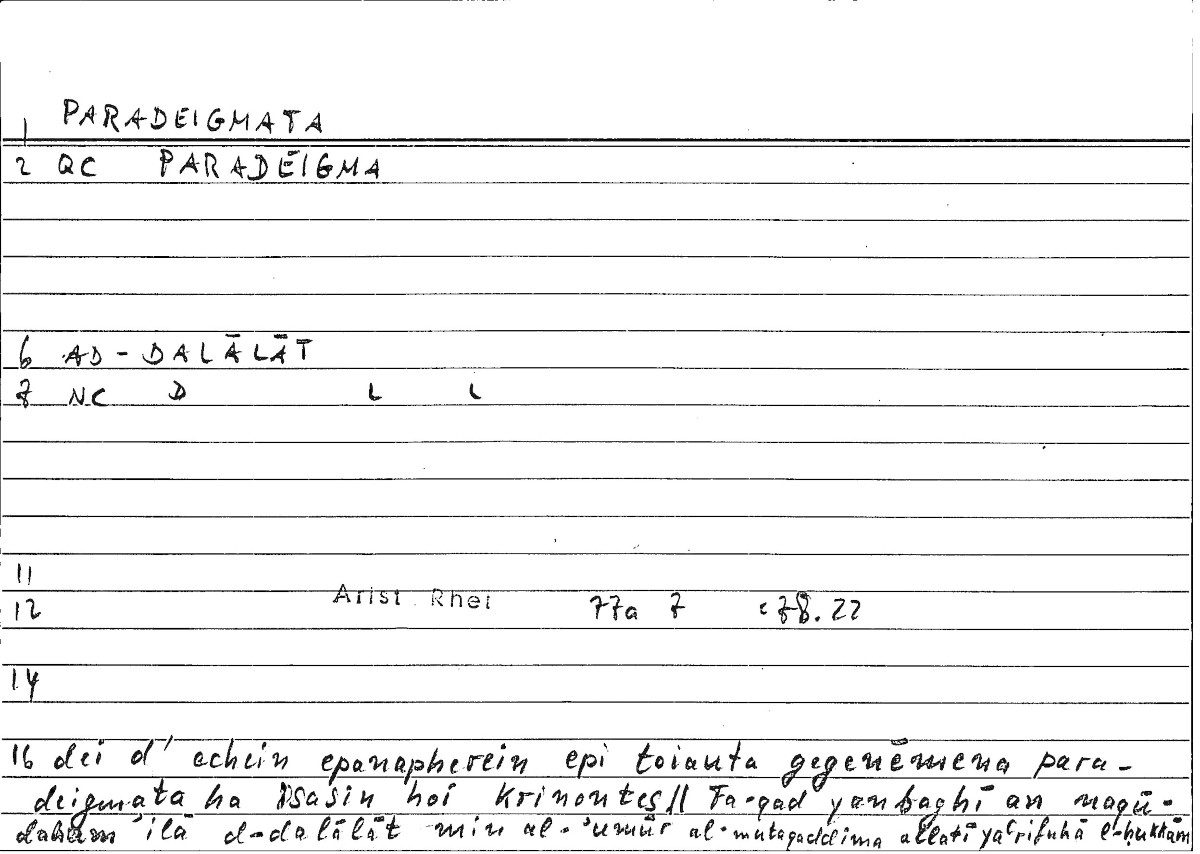 1 PARADEIGMATA
2 QC PARADÉIGMA
6 AD-DALĀLĀT
7 NC D L L
11
12 Arist. Rhet 77a 7 :78.22
14
16 dei d' echein epanapherein epi toiauta gegenēmena para-
deigmata ha isasin hoi krinontes// Fa-qad yanbaghī an naqū-
dahum 'ilā d-dalālāt min al-'umūr al-mutaqaddima allatī yaʿrifuhā l-ḥukkām